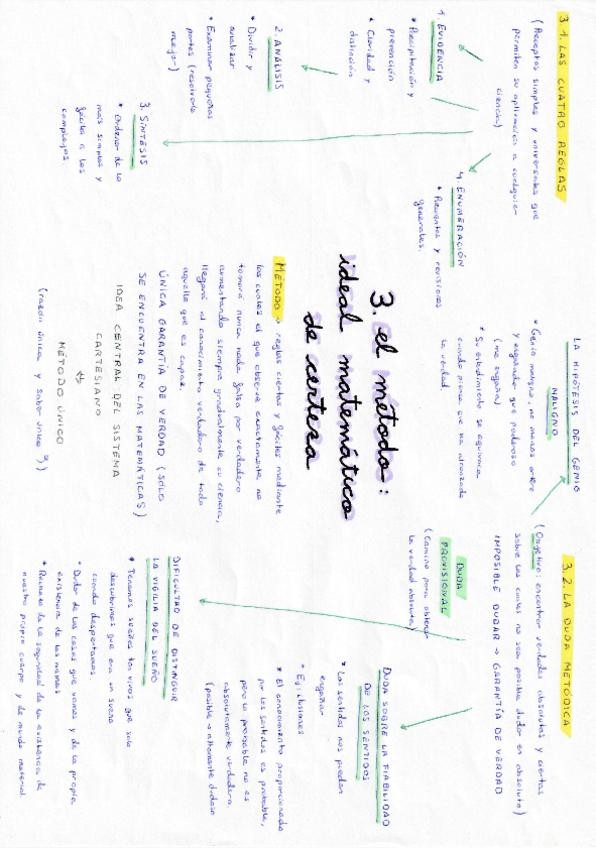 3. el método:
ideal matemático
de certeza
MÉTODO → reglas ciertas y fáciles mediante
los cuales el que observe exactamente no
tomará nunca nada falso por verdadero
aumentando siempre gradualmente su ciencia,
llegará al conocimiento verdadero de todo
aquello que es capaz.
ÚNICA GARANTÍA DE VERDAD (SÓLO
SE ENCUENTRA EN LAS MATEMÁTICAS)
IDEA CENTRAL DEL SISTEMA
CARTESIANO
MÉTODO ÚNICO
(razón única y saber único)
3.1. LAS CUATRO REGLAS
(Preceptos simples y universales que
permiten su aplicación a cualquier
ciencia)
1. EVIDENCIA
• Precipitación y
prevención
• Claridad y
distinción
2. ANÁLISIS
• Dividir y
analizar
• Examinar pequeñas
partes (resolverlo
mejor)
3. SÍNTESIS
• Ordenar de lo
más simples y
fáciles a los
complejos.
4. ENUMERACIÓN
• Recuentos y revisiones
generales.
3.2. LA DUDA METÓDICA
(Objetivo: encontrar verdades absolutas y ciertas
sobre las cuales no sea posible dudar en absoluto)
IMPOSIBLE DUDAR → GARANTÍA DE VERDAD
DUDA
PROVISIONAL
(Camino para obtener
la verdad absoluta)
LA HIPÓTESIS DEL GENIO
MALIGNO
• Genio maligno, no menos artero
y engañador que poderoso
(me engaña)
• Su entendimiento se equivoca
cuando piensa que ha alcanzado
la verdad.
DUDA SOBRE LA FIABILIDAD
DE LOS SENTIDOS
• Los sentidos nos pueden
engañar
• Ej: ilusiones
• El conocimiento proporcionado
por los sentidos es probable,
pero lo probable no es
absolutamente verdadero.
(posible o altamente dudoso
DIFICULTAD DE DISTINGUIR
LA VIGILIA DEL SUEÑO
• Tenemos sueños tan vivos que solo
descubrimos que era un sueño
cuando despertamos.
• Dudar de las cosas que vemos y de la propia
existencia de las mismas
• Rechazo de la seguridad de la existencia de
nuestro propio cuerpo y de mundo material.